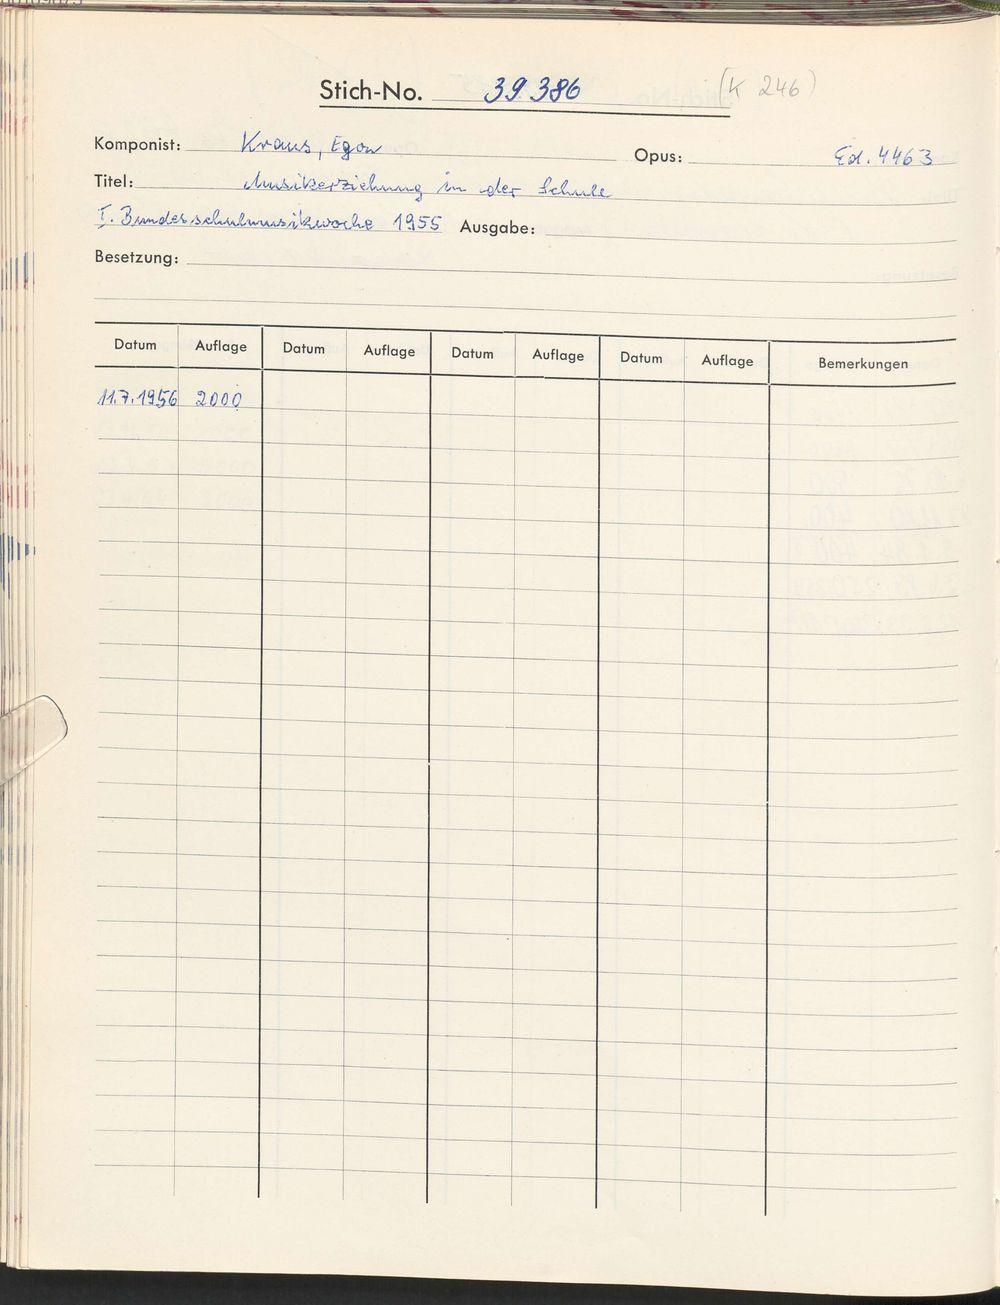 Stich-No. 39386 (K 246)
Komponist: Kraus, Egon Opus: Ed. 4463
Titel: Musikerziehung in der Schule
I. Bundesschulmusikwoche 1955 Ausgabe:
Besetzung:
Datum Auflage Datum Auflage Datum Auflage Datum Auflage Bemerkungen
11.7.1956 2000